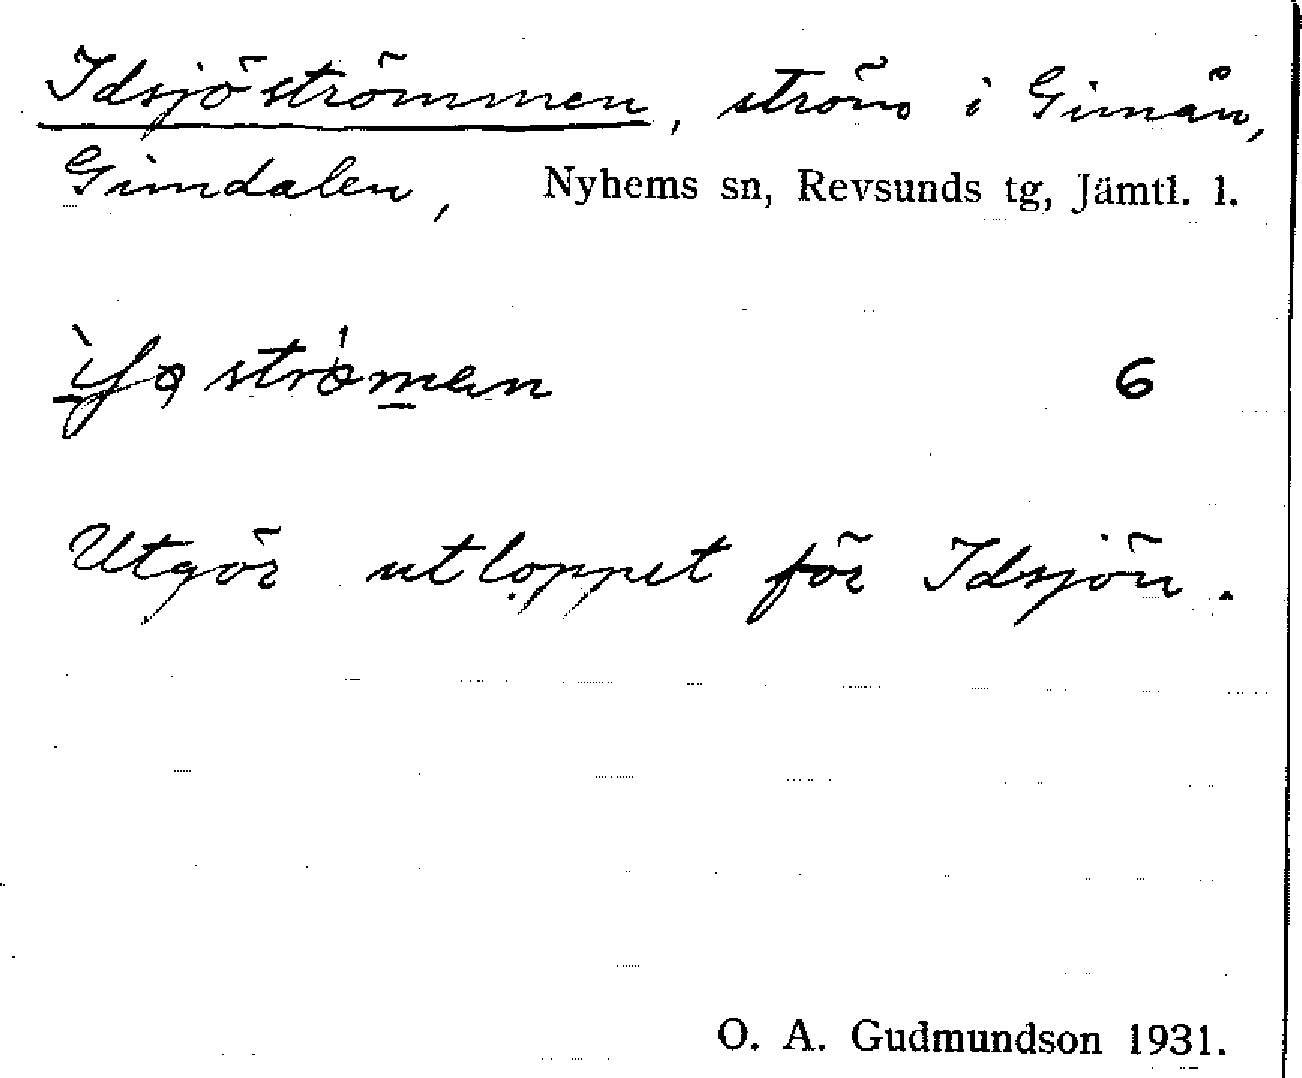 Idsjöströmmen, ström i Gimån,
Gimdalen, Nyhems sn, Revsunds tg, Jämtl. l.
6
Utgör utloppet för Idsjön.
O. A. Gudmundson 1931.